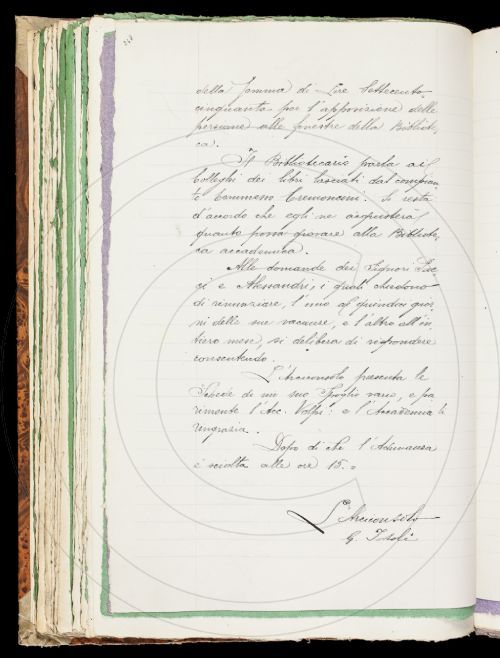 della somma di Lire Settecento,
cinquanta per l'apposizione delle
persiane alle finestre della Bibliote,
ca.
Il Bibliotecario parla ai
Colleghi dei libri lasciati dal compian,
to Commre Cremonini. Si resta
d'accordo che egli ne acquisterà
quanto possa giovare alla Bibliote,
ca accademica.
Alle domande dei Signori
e Alessandri, i quali chiedono
di rinunziare, l'uno al quindici gior,
ni delle sue vacanze, e l'altro all'in,
tiero mese, si delibera di rispondere
consentendo.
L'Arciconsolo presenta le
Schede di un suo Spoglio vario, e pa,
rimente l'Acc. Volpi: e l'Accademia li
ringrazia.
Dopo di che l'Adunanza
è sciolta alle ore 15. =
L'Arciconsolo
G. Tortoli